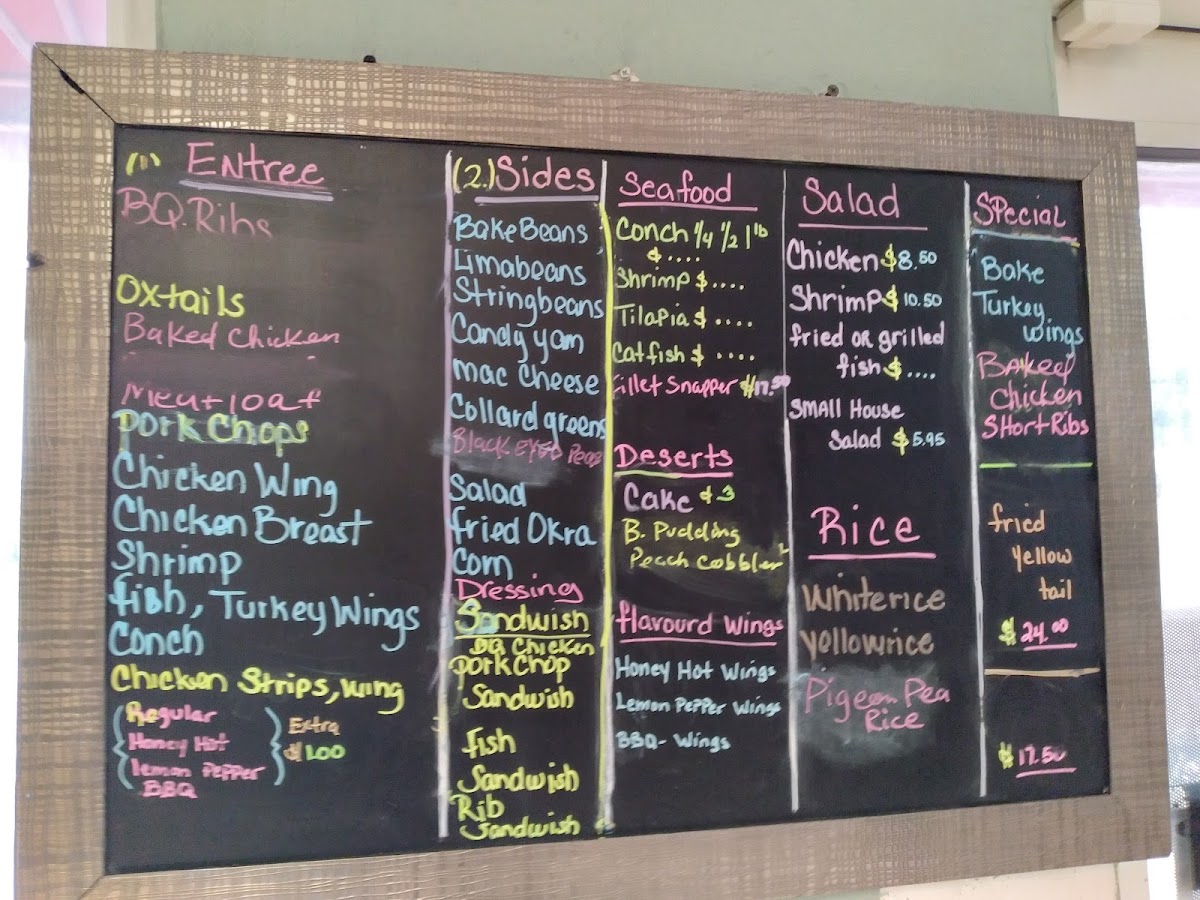 (1) Entree
BQ. Ribs
Oxtails
Baked Chicken
Meat loaf
Pork Chops
Chicken Wing
Chicken Breast
Shrimp
fish, Turkey Wings
Conch
Chicken Strips, wing
Regular
Honey Hot
lemon Pepper
BBQ
Extra
$1.00
(2.) Sides
Bake Beans
Limabeans
Stringbeans
Candy yam
mac cheese
Collard greens
Black eyed Peas
Salad
fried Okra
Corn
Dressing
Sandwish
BQ Chicken
Pork Chop
Sandwish
fish
Sandwish
Rib
Sandwish
Seafood
Conch 1/4 1/2 1 lb
$ ....
Shrimp $ ....
Tilapia $ ....
Catfish $ ....
fillet Snapper $17.50
Deserts
Cake $3
B. Pudding
Peach Cobbler
flavourd Wings
Honey Hot Wings
Lemon Pepper Wings
BBQ- Wings
Salad
Chicken $8.50
Shrimp $10.50
fried or grilled
fish $ ....
Small House
Salad $5.95
Rice
Whiterice
Yellowrice
Pigeon Pea
Rice
Special
Bake
Turkey
wings
Baked
Chicken
Short Ribs
fried
yellow
tail
$24.00
$17.50